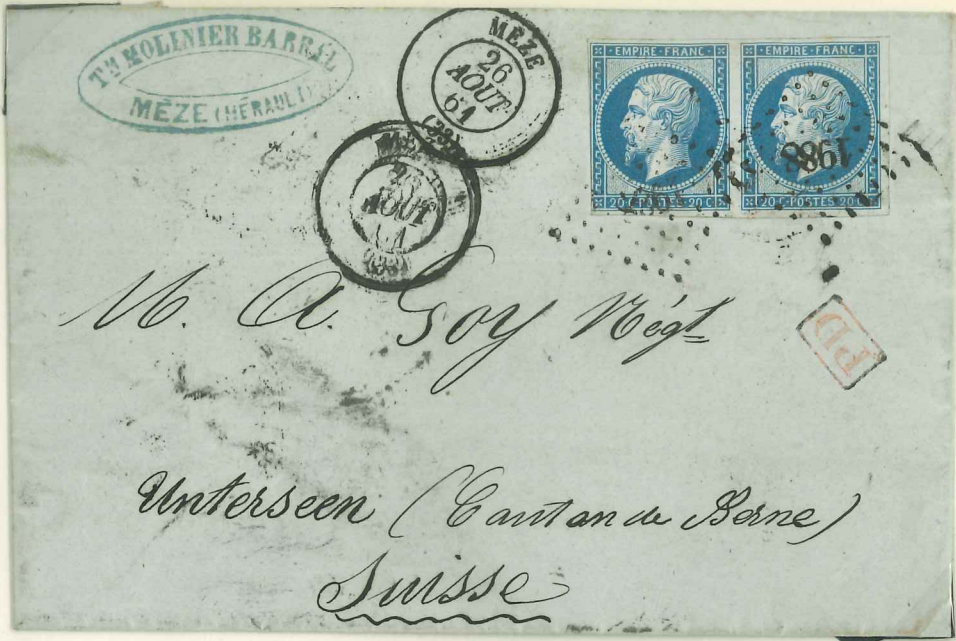 Th MOLINIER BARRAL
MÈZE (HÉRAULT)
MÈZE
26
AOUT
61
(33)
AOUT
61
(33)
EMPIRE · FRANC
20 C · POSTES · 20 C
EMPIRE · FRANC
20 C · POSTES · 20 C
1988
PD
M. A. Goy Négt
Unterseen (Canton de Berne)
Suisse